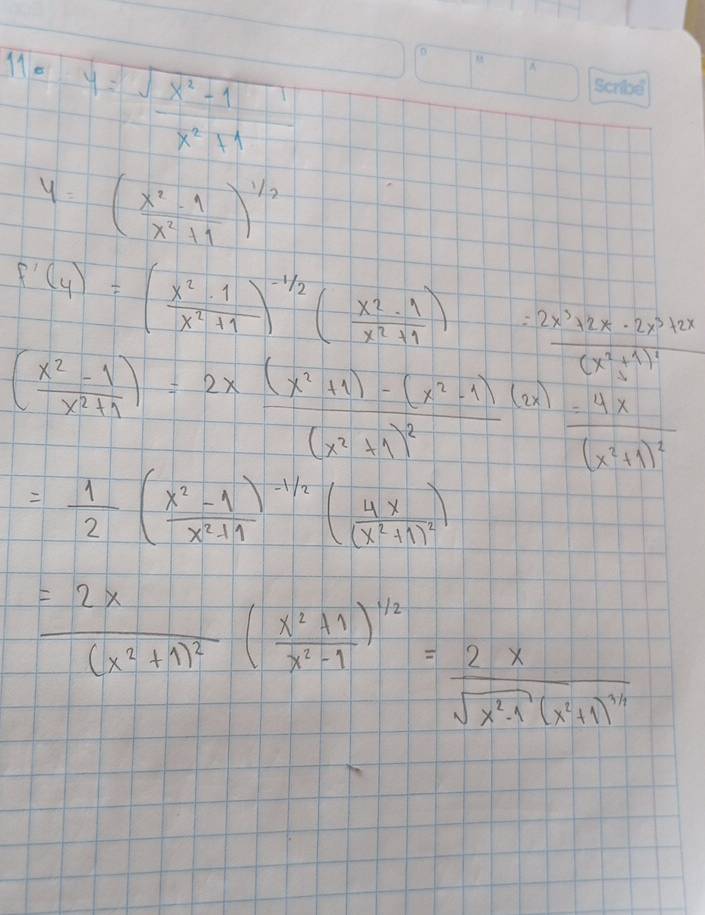 D M A
Scribe
11. y = √(x² - 1 / x² + 1)
y = (x² - 1 / x² + 1)^1/2
f'(y) = (x² - 1 / x² + 1)^-1/2 (x² - 1 / x² + 1)
= 2x³ + 2x - 2x³ + 2x / (x² + 1)²
(x² - 1 / x² + 1) = 2x (x² + 1) - (x² - 1) (2x) / (x² + 1)²
= 4x / (x² + 1)²
= 1/2 (x² - 1 / x² + 1)^-1/2 (4x / (x² + 1)²)
= 2x / (x² + 1)² (x² + 1 / x² - 1)^1/2 = 2x / √x² - 1 (x² + 1)^3/2